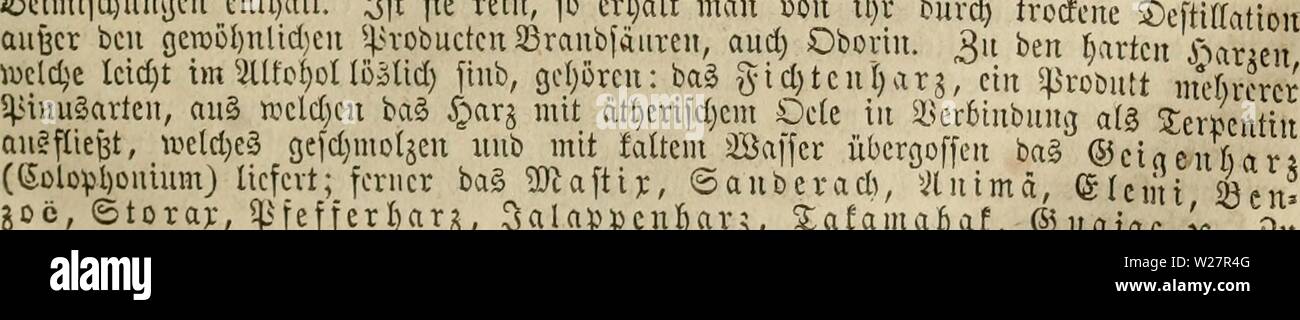 Beimischungen enthält. Ist sie rein, so erhält man von ihr durch trockene Destillation
außer den gewöhnlichen Producten Brandsäuren, auch Odorin. Zu den harten Harzen,
welche leicht im Alkohol löslich sind, gehören: das Fichtenharz, ein Produkt mehrerer
Pinusarten, aus welchen das Harz mit ätherischem Oele in Verbindung als Terpentin
ausfließt, welches geschmolzen und mit kaltem Wasser übergossen das Geigenharz
(Colophonium) liefert; ferner das Mastix, Sanderach, Animä, Elemi, Ben-
zoë, Storax, Pfefferharz, Jalappenharz, Takamahak, Guajac ꝛc. Zu
alamy
alamy
Image ID: W27R4G
www.alamy.com